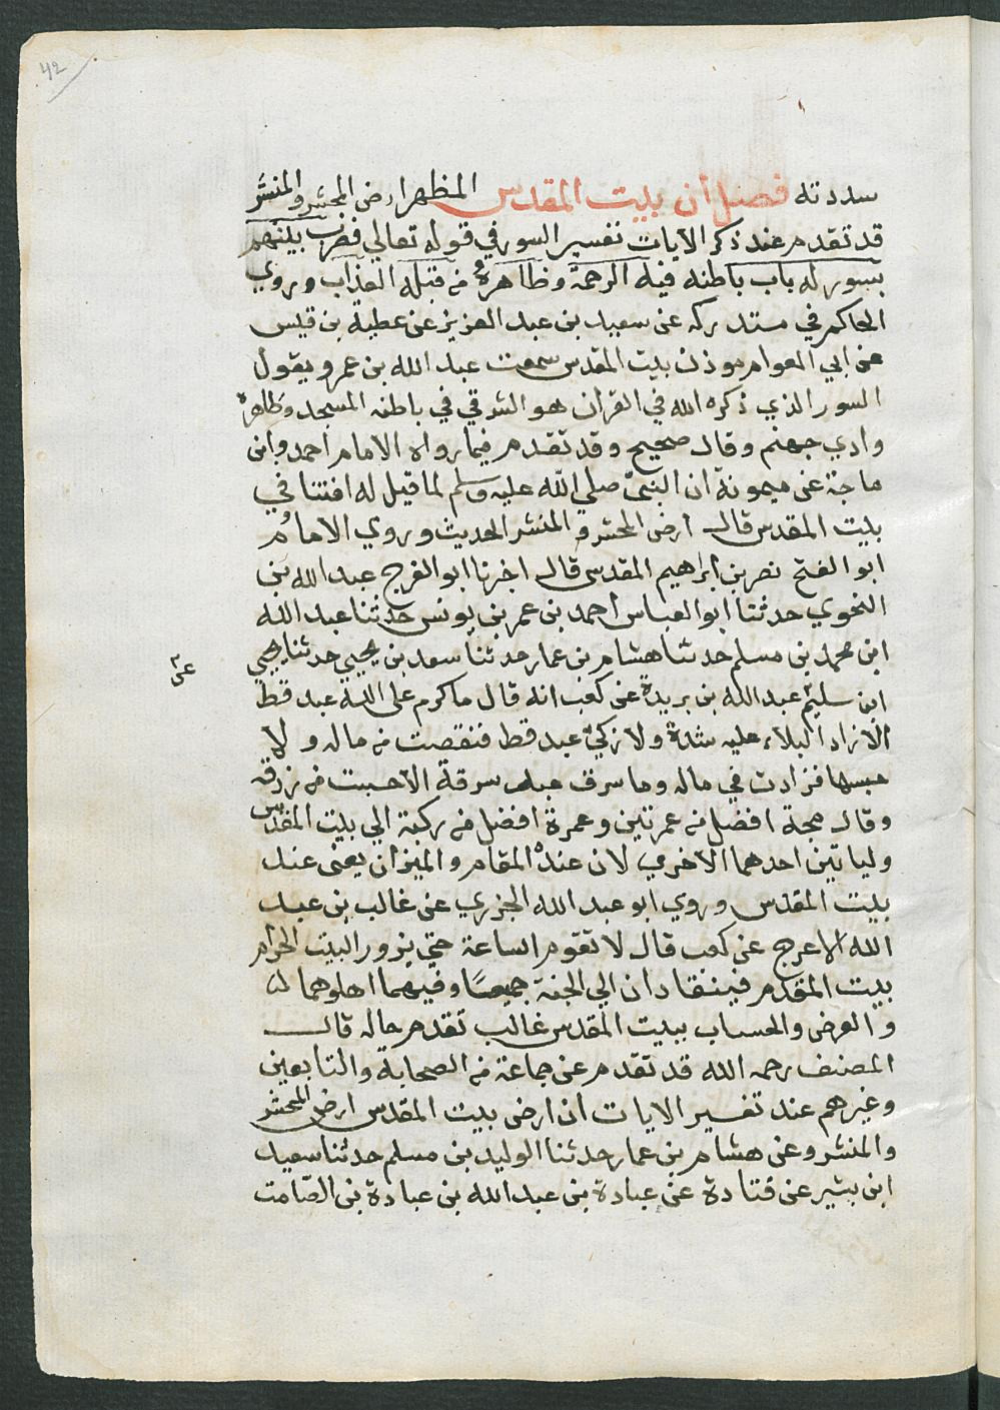 42
سددته فصل أن بيت المقدس المطهر ارض المحشر والمنشر
قد تقدم عند ذكر الآيات تفسير السور في قوله تعالي فضرب بينهم
بسور له باب باطنه فيه الرحمة وظاهره من قبله العذاب وروي
الحاكم في مستدركه عن سعيد بن عبد العزيز عن عطية بن قيس
عن ابي العوام موذن بيت المقدس سمعت عبد الله بن عمرو يقول
السور الذي ذكره الله في القرآن هو الشرقي في باطنه المسجد وظاهره
وادي جهنم وقال صحيح وقد تقدم فيما رواه الامام احمد وابن
ماجة عن ميمونة ان النبي صلي الله عليه وسلم لما قيل له افتنا في
بيت المقدس قال ارض المحشر والمنشر الحديث وروي الامام
ابو الفتح نصر بن ابراهيم المقدسي قال اخبرنا ابو الفرج عبد الله بن
النحوي حدثنا ابو العباس احمد بن عمر بن يونس حدثنا عبد الله
ابن محمد بن مسلم حدثنا هشام بن عمار حدثنا سعد بن يحيي حدثنا يحيي
عن
ابن سليم عبد الله بن بريدة عن كعب انه قال ما كرم على الله عبد قط
الا زاد البلاء عليه شدة ولا زكي عبد قط فنقصت من ماله ولا
حبسها فزادت في ماله وما سرق عبد سرقة الا حسبت من رزقه
وقال حجة افضل من عمرتين وعمرة افضل من ركبة الي بيت المقدس
وليا تين احدهما الاخري لان عنده المقام والميزان يعني عند
بيت المقدس وروي ابو عبد الله الجزري عن غالب بن عبد
الله الاعرج عن كعب قال لا تقوم الساعة حتي يزور البيت الحرام
بيت المقدم فينقادان الي الجنة جميعا وفيهما اهلوهما
والعرض والحساب ببيت المقدس غالب تقدم حاله قال
المصنف رحمه الله قد تقدم عن جماعة من الصحابة والتابعين
وغيرهم عند تفسير الايات ان ارض بيت المقدس ارض المحشر
والمنشر وعن هشام بن عمار حدثنا الوليد بن مسلم حدثنا سعيد
ابن بشير عن قتادة عن عبادة بن عبد الله بن عبادة بن الصامت